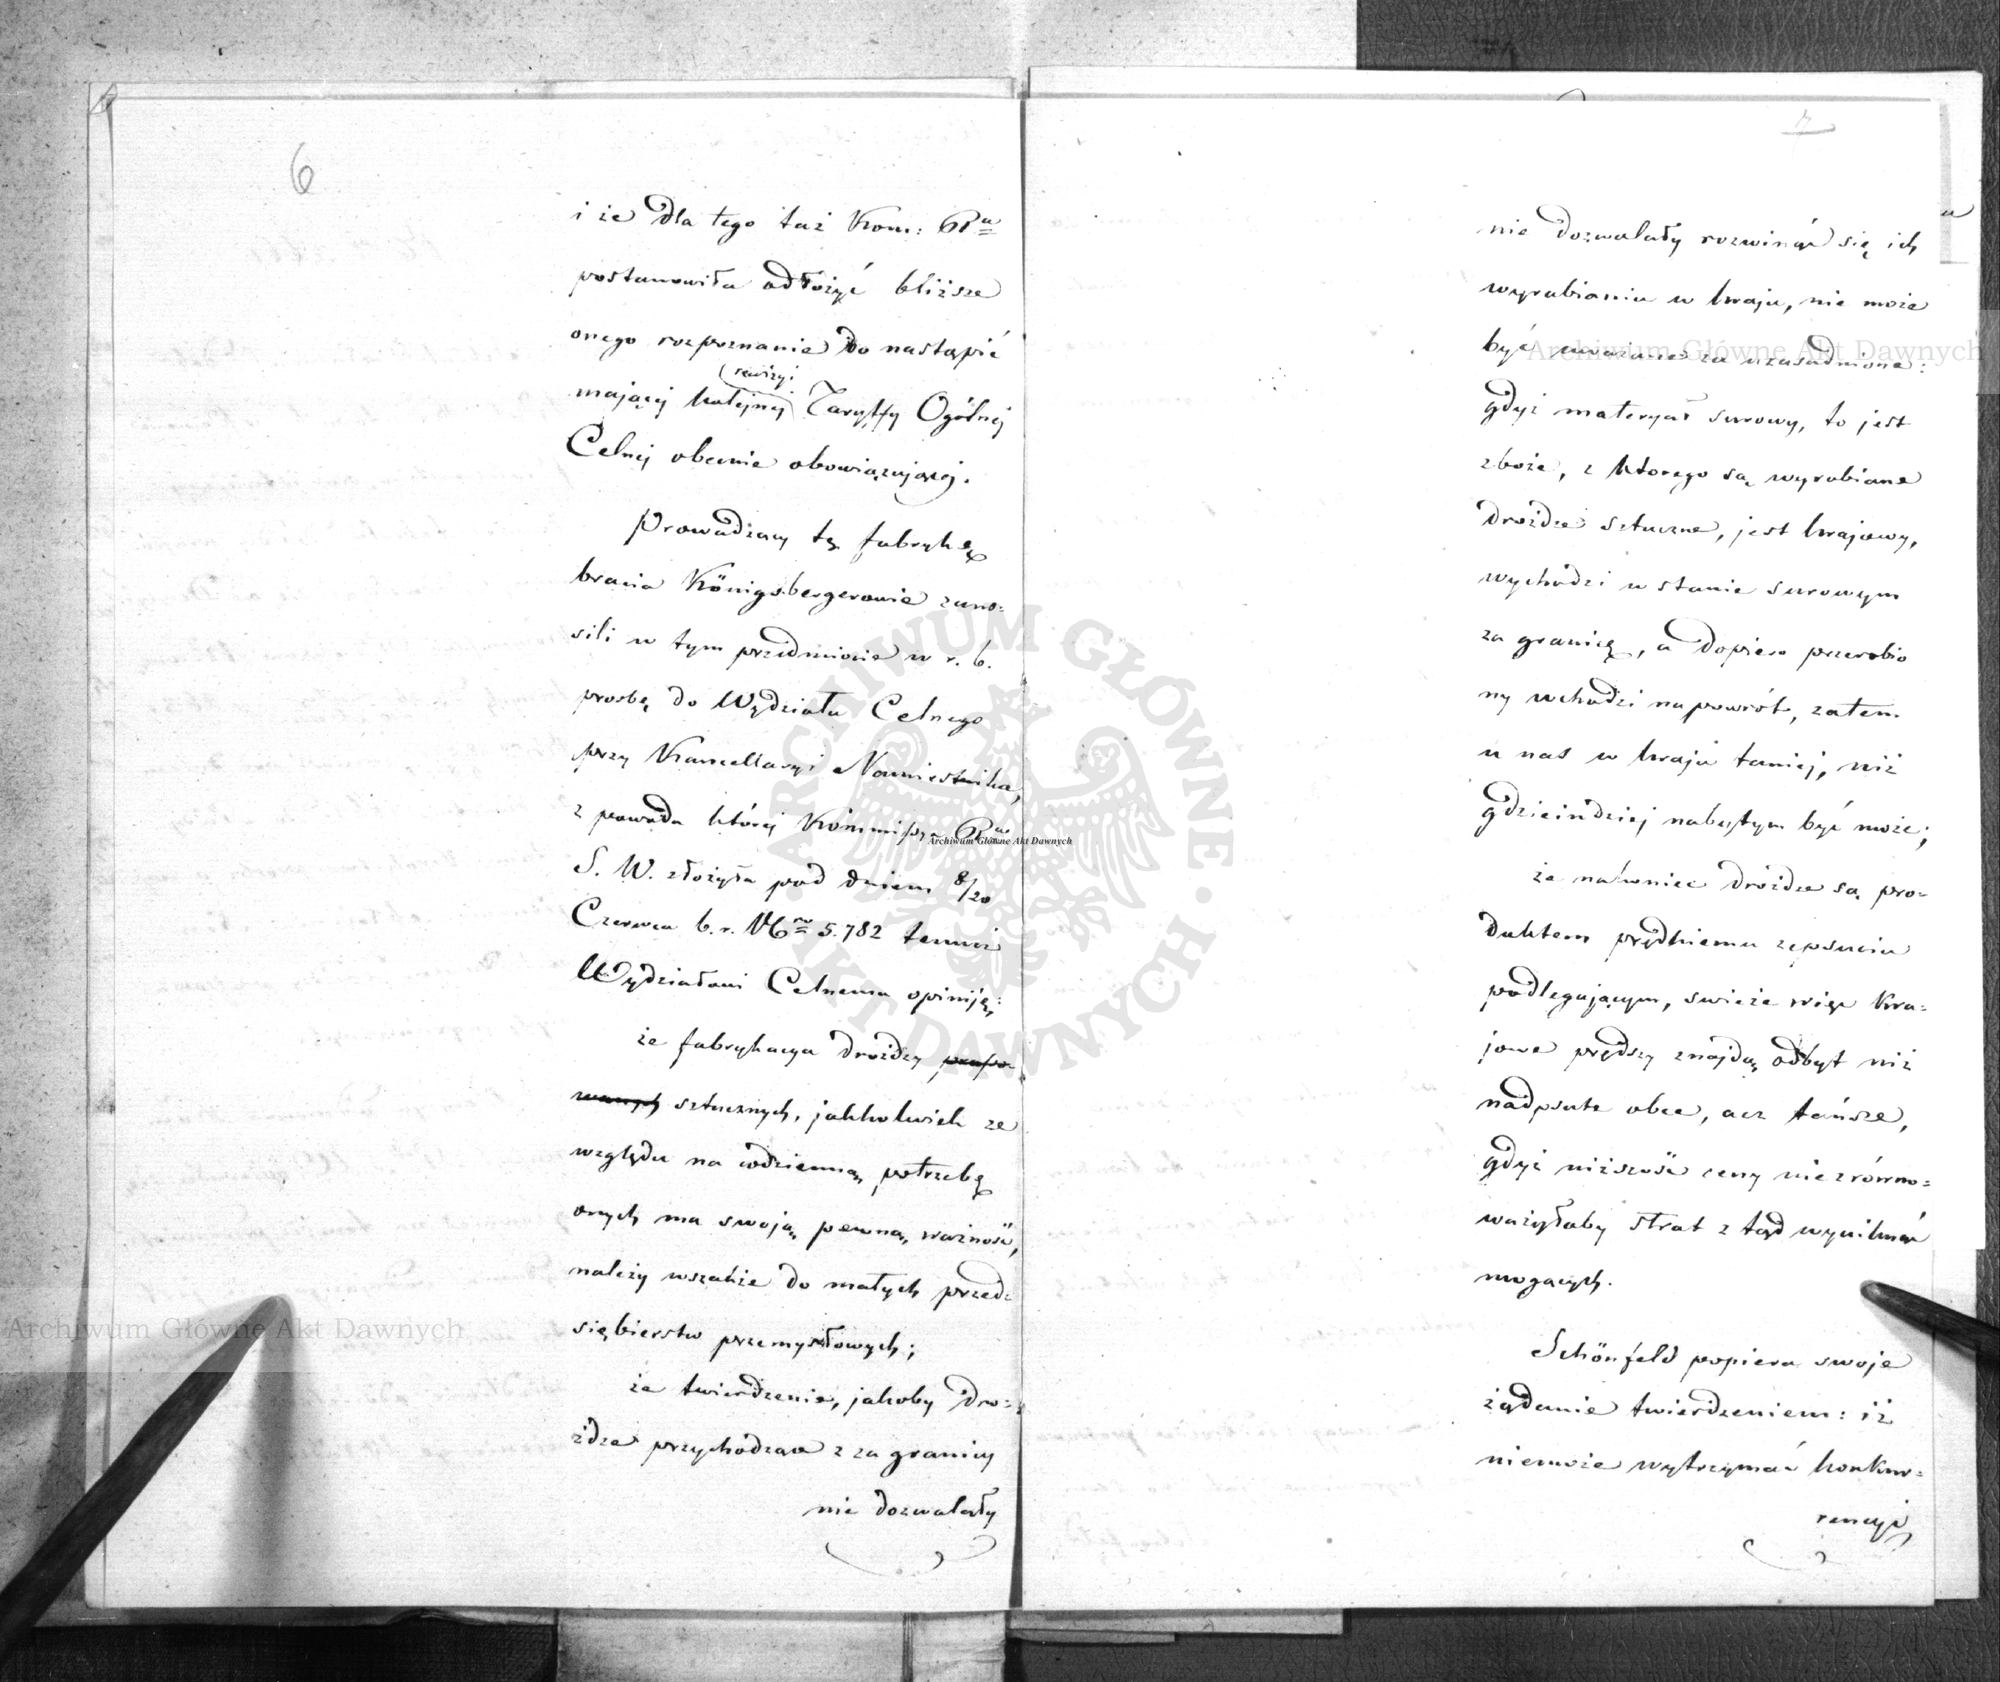 6
i że dla tego taż Kom: Rwa
postanowiła odłożyć bliższe
onego rozpoznanie do nastąpić
mającej kolejnej rewizyi Taryffy Ogólnej
Celnej obecnie obowiązującej.
Prowadzący tę fabrykę
bracia Königsbergerowie zano=
sili w tym przedmiocie w r. b.
prosbę do Wydziału Celnego
przy Kancellaryi Namiestnika,
z powodu której Kommissya Rwa
S. W. złożyła pod dniem 8/20
Czerwca b. r. Nro 5.782 temuż
Wydziałowi Celnemu opiniję:
że fabrykacya drożdży prasso=
wanych sztucznych, jakkolwiek ze
względu na codzienną potrzebę
onych ma swoją pewną ważność,
należy wszakże do małych przed=
siębierstw przemysłowych;
że twierdzenie, jakoby dro=
żdże przychodzące z za granicy
nie dozwalały
7
nie dozwalały rozwinąć się ich
wyrabianiu w kraju, nie może
być uważane za uzasadnione:
gdyż materyał surowy, to jest
zboże, z ktorego są wyrabiane
drożdże sztuczne, jest krajowy,
wychodzi w stanie surowym
za granicę, a dopiero przerobio
ny wchodzi napowrót, zatem
u nas w kraju taniej, niż
gdzieindziej nabytym być może;
że nakoniec drożdże są pro=
duktem prędkiemu zepsuciu
podlegającym, swieże więc kra=
jowe prędszy znajdą odbyt niż
nadpsute obce, acz tańsze,
gdyż niższość ceny niezrówno=
ważyłaby strat z tąd wyniknąć
mogących.
Schönfeld popiera swoje
żądanie twierdzeniem: iż
niemoże wytrzymać konkur=
rencyi
Archiwum Główne Akt Dawnych
Archiwum Główne Akt Dawnych
Archiwum Główne Akt Dawnych
ARCHIWUM GŁÓWNE · AKT DAWNYCH ·